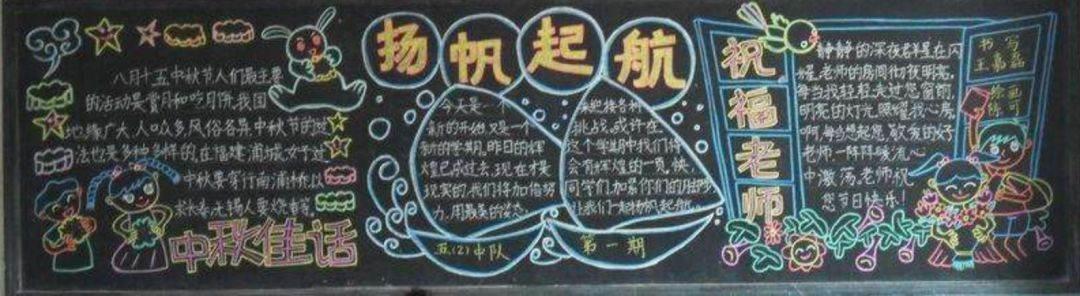 八月十五中秋节人们最主要
的活动是赏月和吃月饼,我国
地缘广大,人口众多,风俗各异,中秋节的过
法也是多种多样的,在福建浦城,女子过
中秋要穿行南浦桥,以
求长寿,无锡人要烧斗香。
中秋佳话
扬帆起航
今天是一个
新的开始,又是一个
新的学期。昨日的辉
煌已成过去,现在才是
现实的,我们将加倍努
力,用最美的姿态,
来迎接各种
挑战。或许在
这个学期中我们将
会有辉煌的一页,快,
同学们,加紧你们的脚步
让我们一起扬帆起航。
五(2)中队
第一期
祝福老师
静静的深夜群星在闪
耀,老师的房间彻夜明亮,
每当我轻轻走过您窗前,
明亮的灯光照耀我心房。
啊,每当想起您,敬爱的好
老师,一阵阵暖流心
中激荡。老师,祝
您节日快乐!
书写
绘画